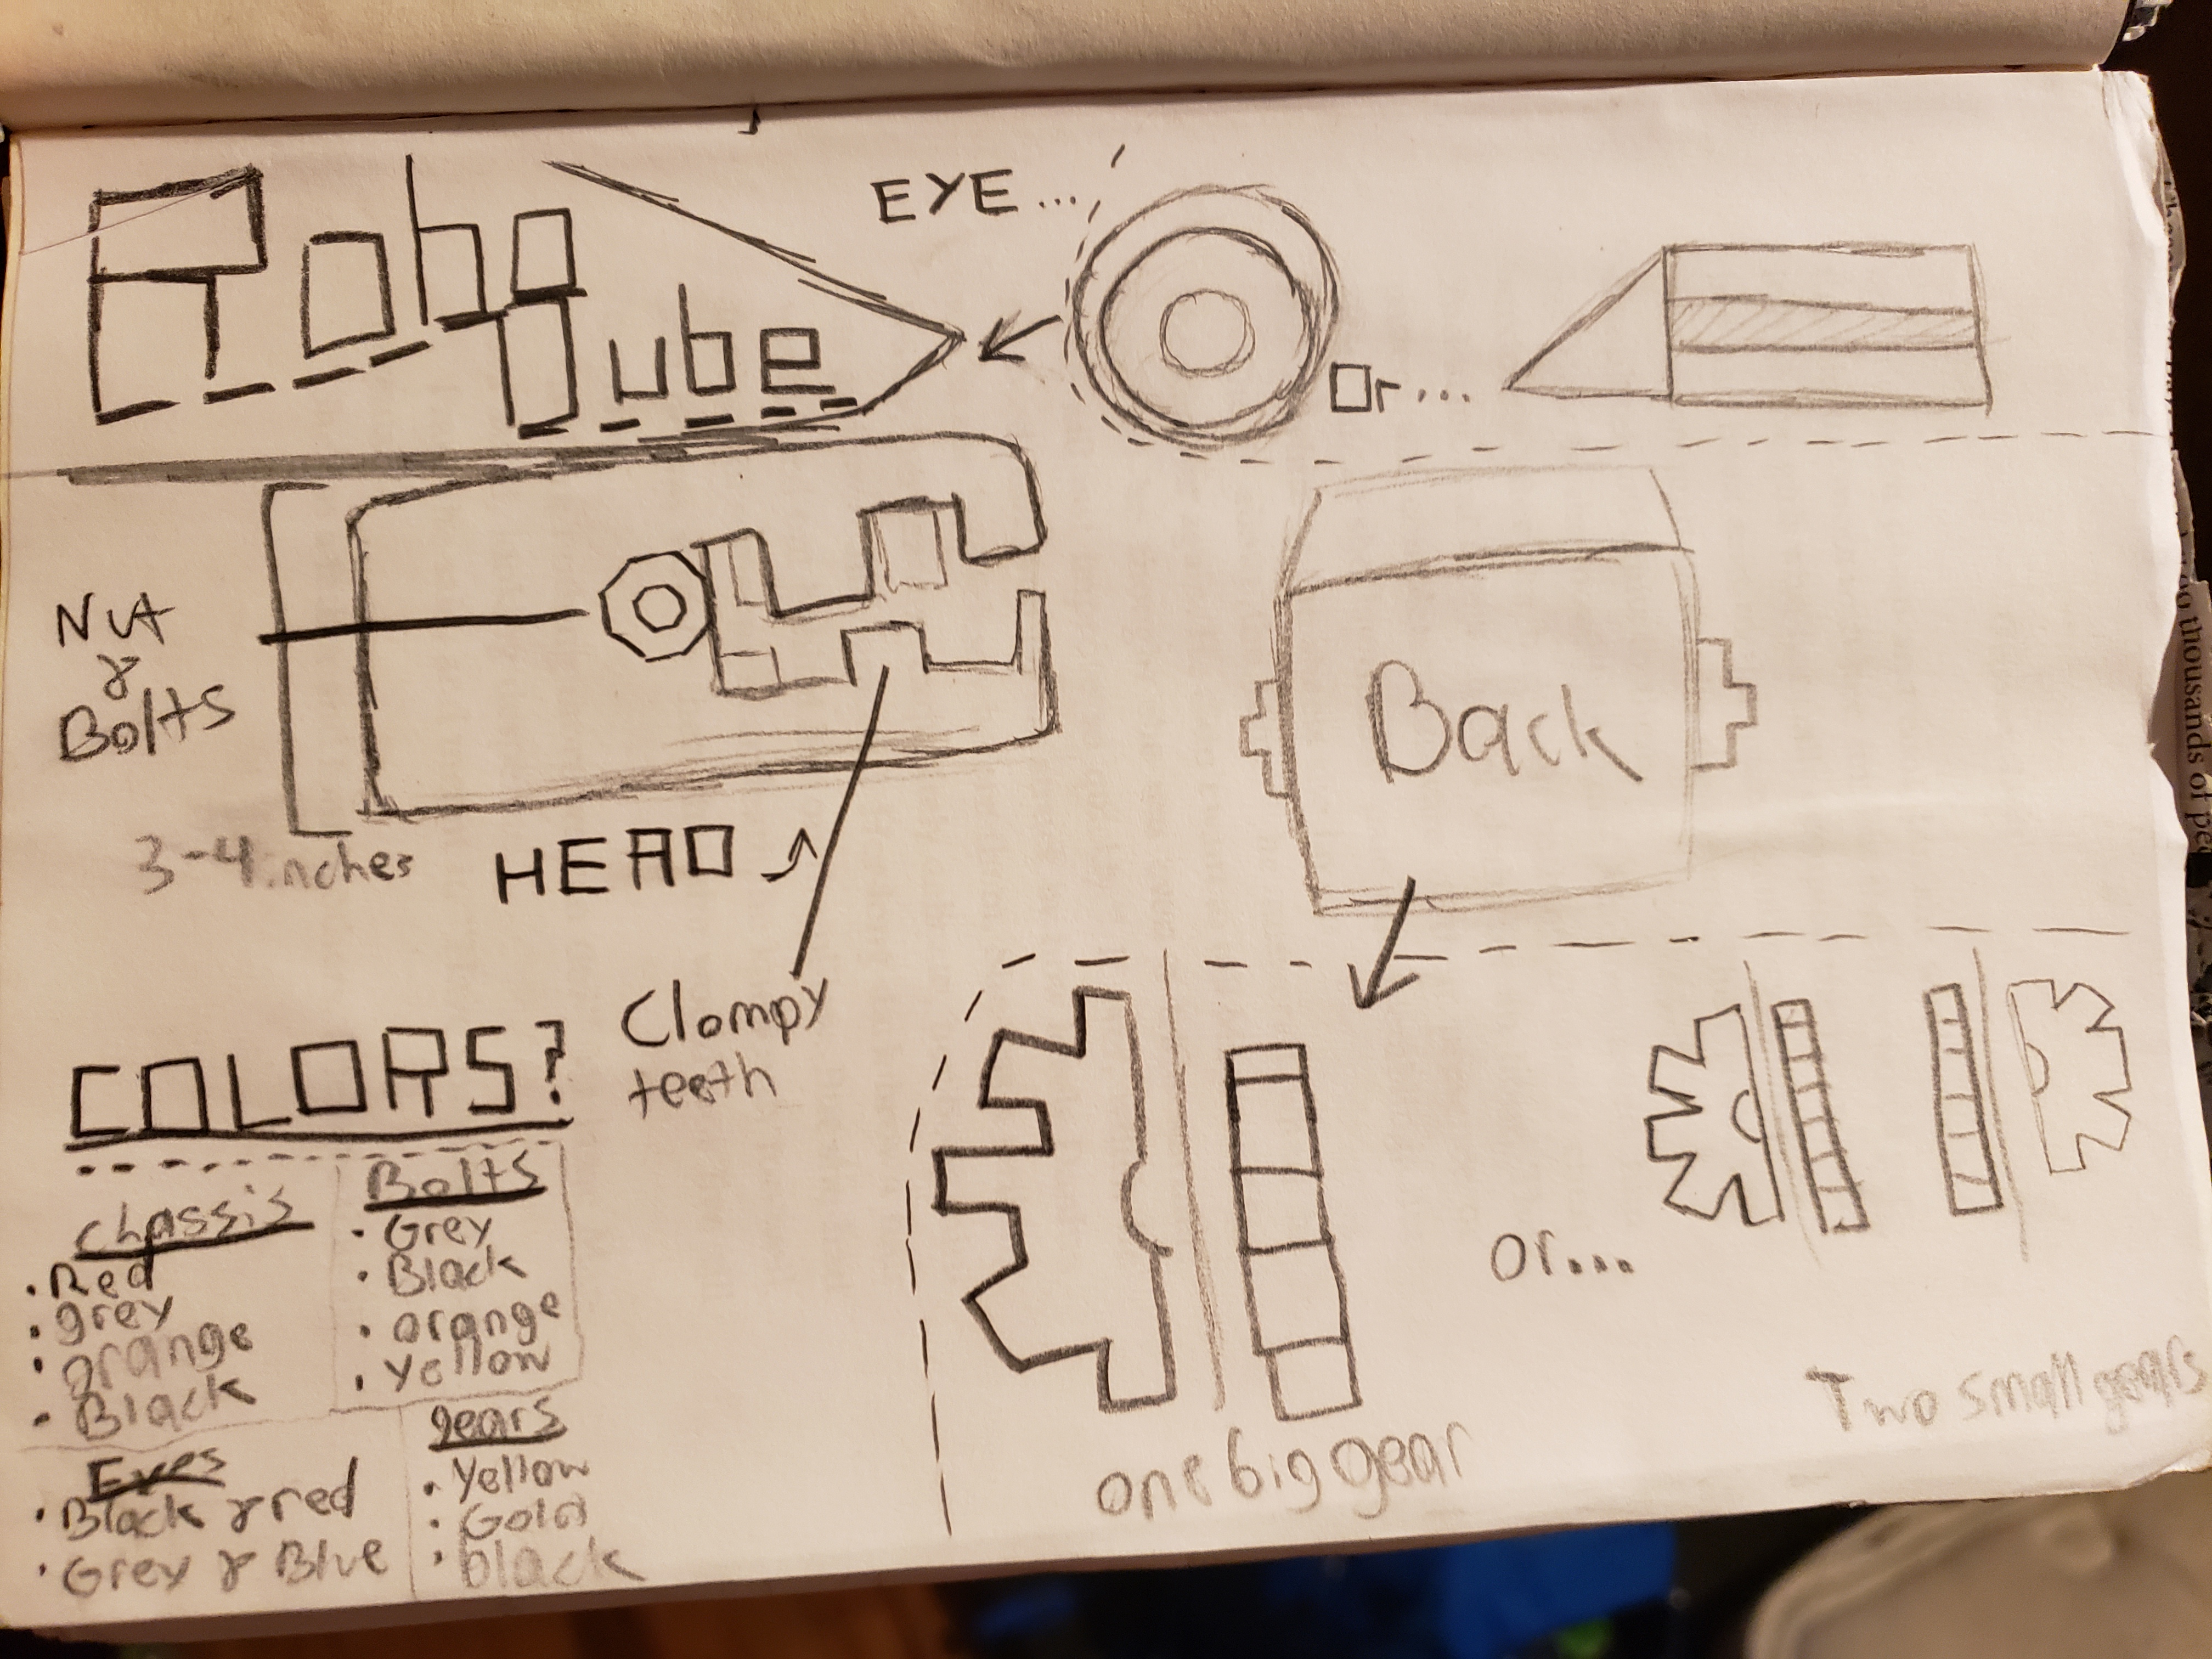 Robo
EYE...
Or...
Nut
&
Bolts
3-4 inches
HEAD
Clompy
teeth
Back
COLORS?
chassis
• Red
• grey
• orange
• Black
Bolts
• Grey
• Black
• orange
• Yellow
Eyes
• Black & red
• Grey & Blue
gears
• Yellow
• Gold
• black
one big gear
or...
Two small gears
thousands of